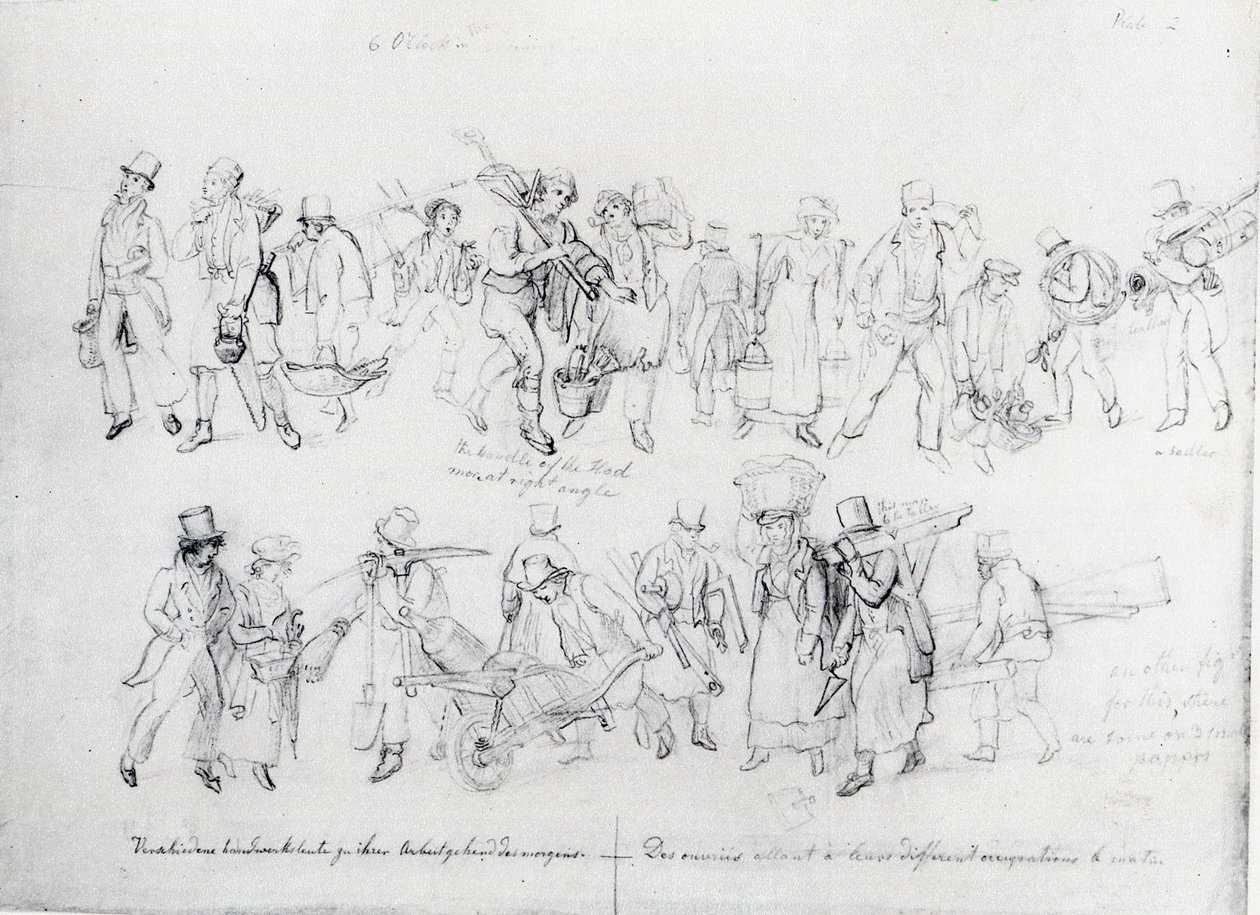 Plate 2
6 O'Clock in the morning
the handle of the Hod
more at right angle
a sadler
this man
to be taller
another fig
for this there
are some on 3
papers
Verschiedene handwerksleute zu ihrer Arbeit gehend des morgens. —
Des ouvriés allant à leurs different occupations le matin